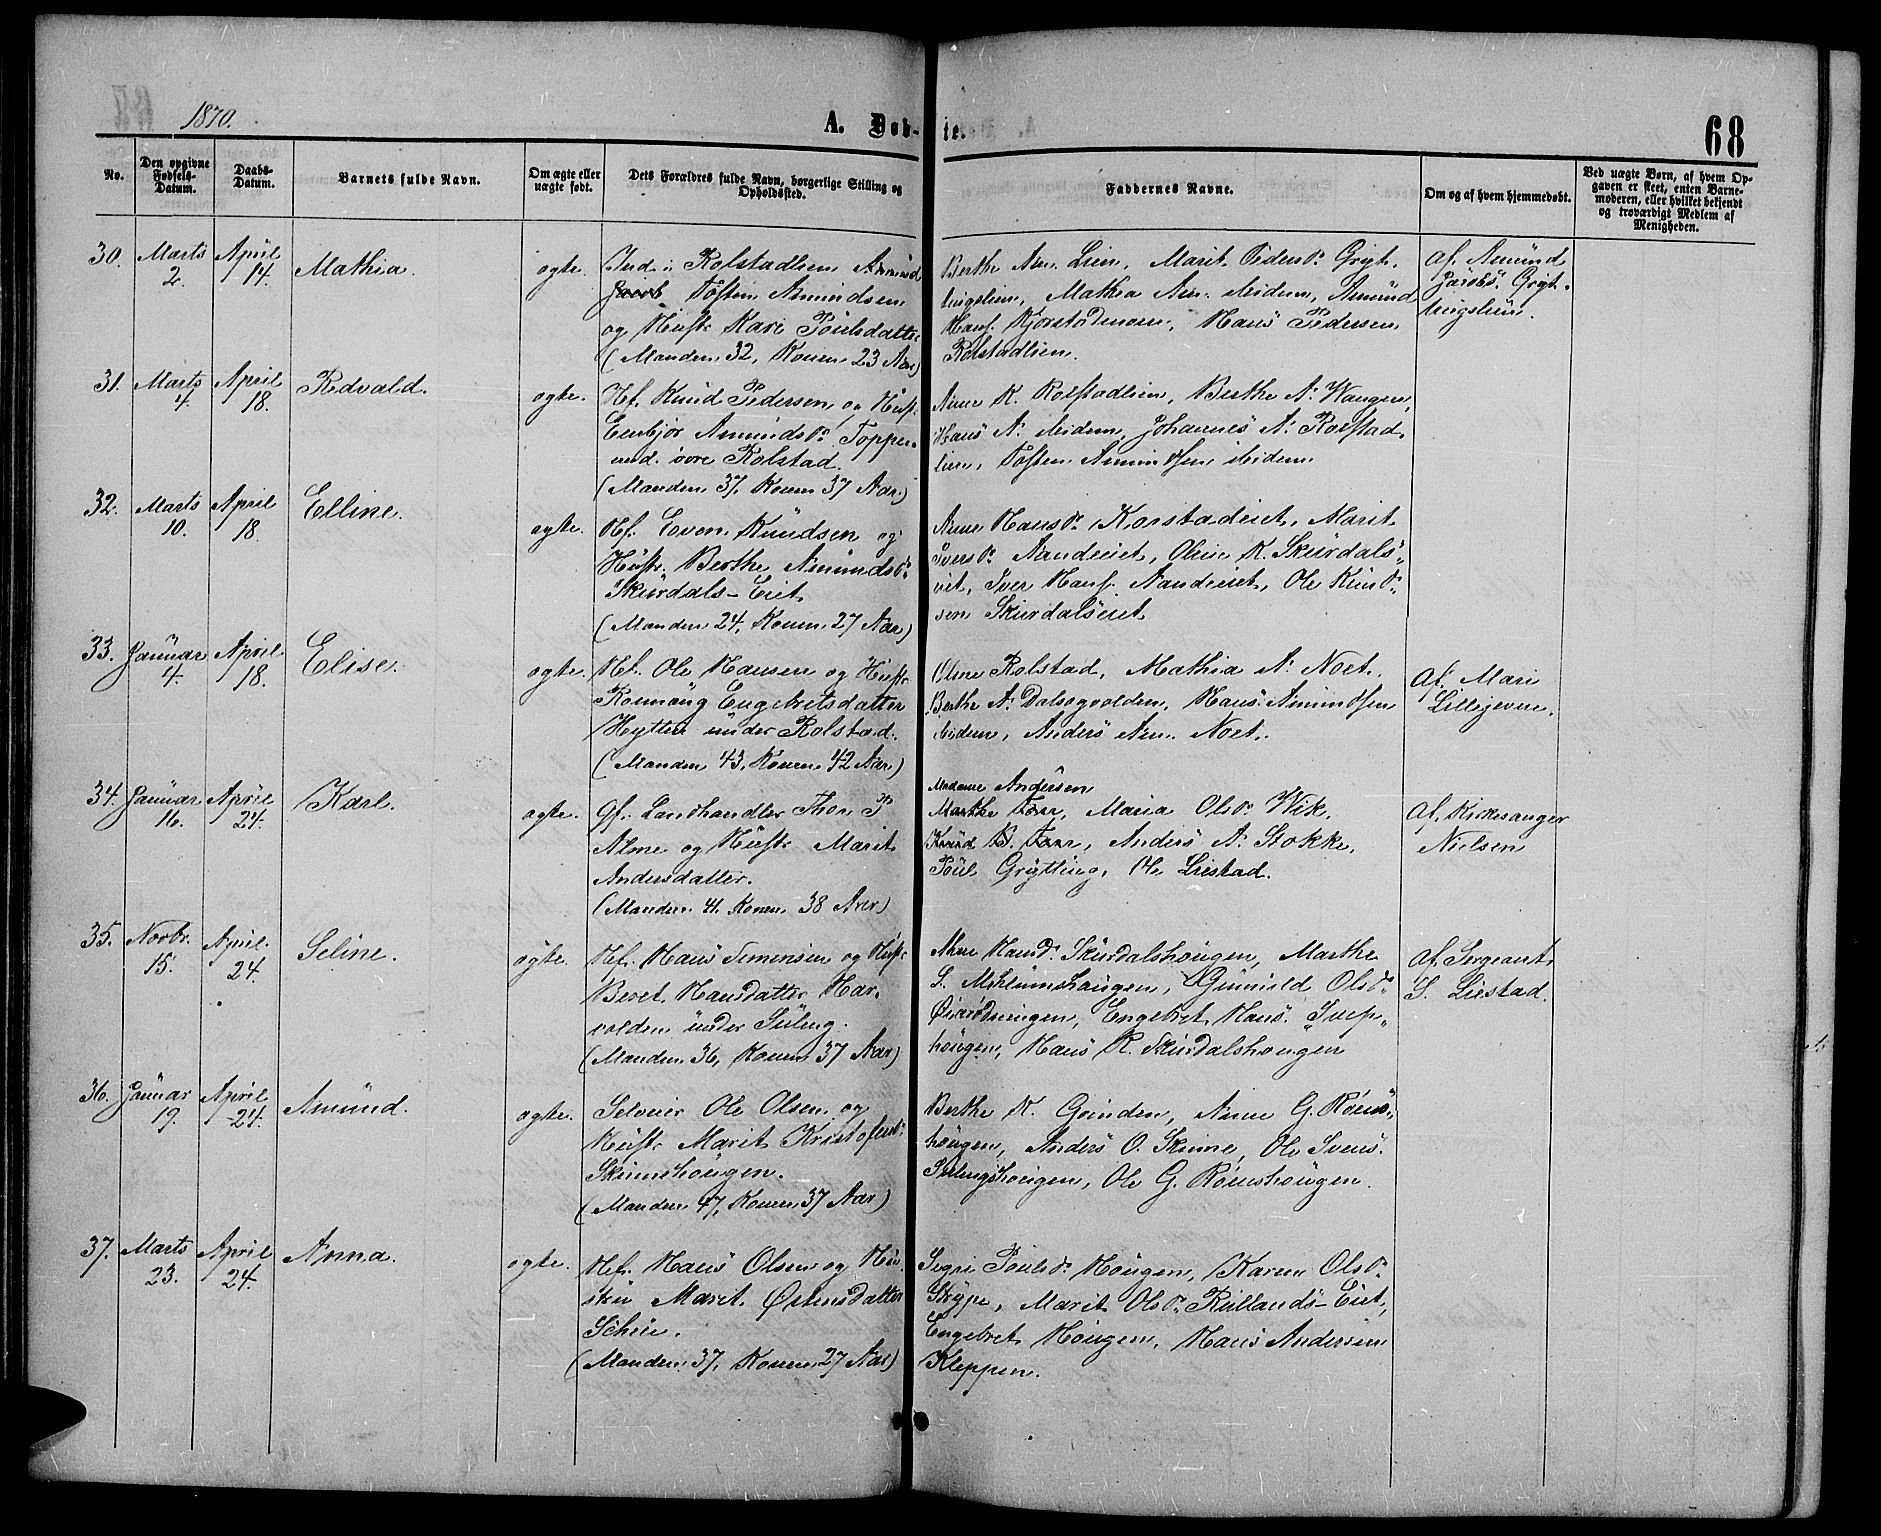 1870.
A. Døb-
te.
68
No.
Den opgivne Fødsels-Datum.
Daabs-Datum.
Barnets fulde Navn.
Om ægte eller uægte født.
Dets Forældres fulde Navn, borgerlige Stilling og Opholdssted.
Faddernes Navne.
Om og af hvem hjemmedøbt.
Ved uægte Børn, af hvem Op-
gaven er skeet, enten Barne-
moderen, eller hvilket bekjendt
og troværdigt Medlem af
Menigheden.
30.
Marts 2.
April 14.
Mathia.
ægte.
Ind. i Rolstadlien Amund
Jacob Tosten Amundsen
og Hustr. Kari Poulsdatter
(Manden 32, Konen 23 Aar)
Berthe Am. Lien, Marit Pedersd. Gryt-
tingslien, Mathea Am. ibidem, Amund
Hans. Kjorstadmoen, Hans Pedersen
Rolstadlien.
af Amund
Jacobs. Gryt-
tingslien.
31.
Marts 4.
April 18.
Redvald.
ægte.
Hf. Knud Pedersen og Hust.
Enebjør Amundsd. Toppen
und. øvre Rolstad.
(Manden 37, Konen 37 Aar.)
Anne K. Rolstadlien, Berthe A. Wangen,
Hans A. ibidem, Johannes A. Rolstad-
lien, Tosten Amundsen ibidem
32.
Marts 10.
April 18.
Elline.
ægte.
Hf. Even Knudsen og
Hustr. Berthe Amundsd.
Skurdals-Eiet
(Manden 24, Konen 27 Aar)
Anne Hansd. Korstadeiet, Marit
Iversd. Aandeiet, Oline K. Skurdals-
eiet, Iver Hans. Aandeiet, Ole Knud-
sen Skurdalseiet
33.
Januar 4.
April 18.
Elise.
ægte.
Hf. Ole Hansen og Hustr.
Ronnaug Engebretsdatter
Hytten under Rolstad.
(Manden 43, Konen 42 Aar)
Oline Rolstad, Mathia A. Noet,
Berthe A. Dalsegvolden, Hans Amundsen
ibidem, Anders Am. Noet.
af Mari
Lillejevne.
34.
Januar 16.
April 24.
Karl.
ægte.
Gf. Landhandler Thor P
Alme og Hustr Marit
Andersdatter.
(Manden 41. Konen 38 Aar)
Madame Andersen
Marthe Torr, Maria Olsd. Wik,
Knud B. Torr, Anders A. Stokke,
Poul Grytting, Ole Liestad.
af Kirkesanger
Nielsen
35.
Novbr. 15.
April 24.
Seline.
ægte.
Hf. Hans Simensen og Hust.
Beret Hansdatter Har-
volden under Suling.
(Manden 36, Konen 37 Aar)
Anne Hansd. Skurdalshougen, Marthe
S. Mehlumshaugen, Gunhild Olsd.
Engebret Hans.
hougen, Hans R. Skurdalshougen
af Sergeant
S. Liestad.
36.
Januar 19.
April 24.
Amund.
ægte.
Selveier Ole Olsen og
Hustr Marit Kristofersd.
Skinnshougen.
(Manden 47, Konen 37 Aar)
Berthe K. Grinden, Anne G. Roens-
hougen, Anders O. Skinne, Ole Svens.
Sulingshougen, Ole G. Roenshougen.
37.
Marts 23.
April 24.
Anna.
ægte.
Hf. Hans Olsen og Hu-
stru Marit Østensdatter
Scheie.
(Manden 37, Konen 27 Aar)
Sigri Poulsd. Hougen, Karen Olsd.
Strype, Marit Olsd. Rullands-Eiet,
Engebret Hougen, Hans Andersen
Kleppen.